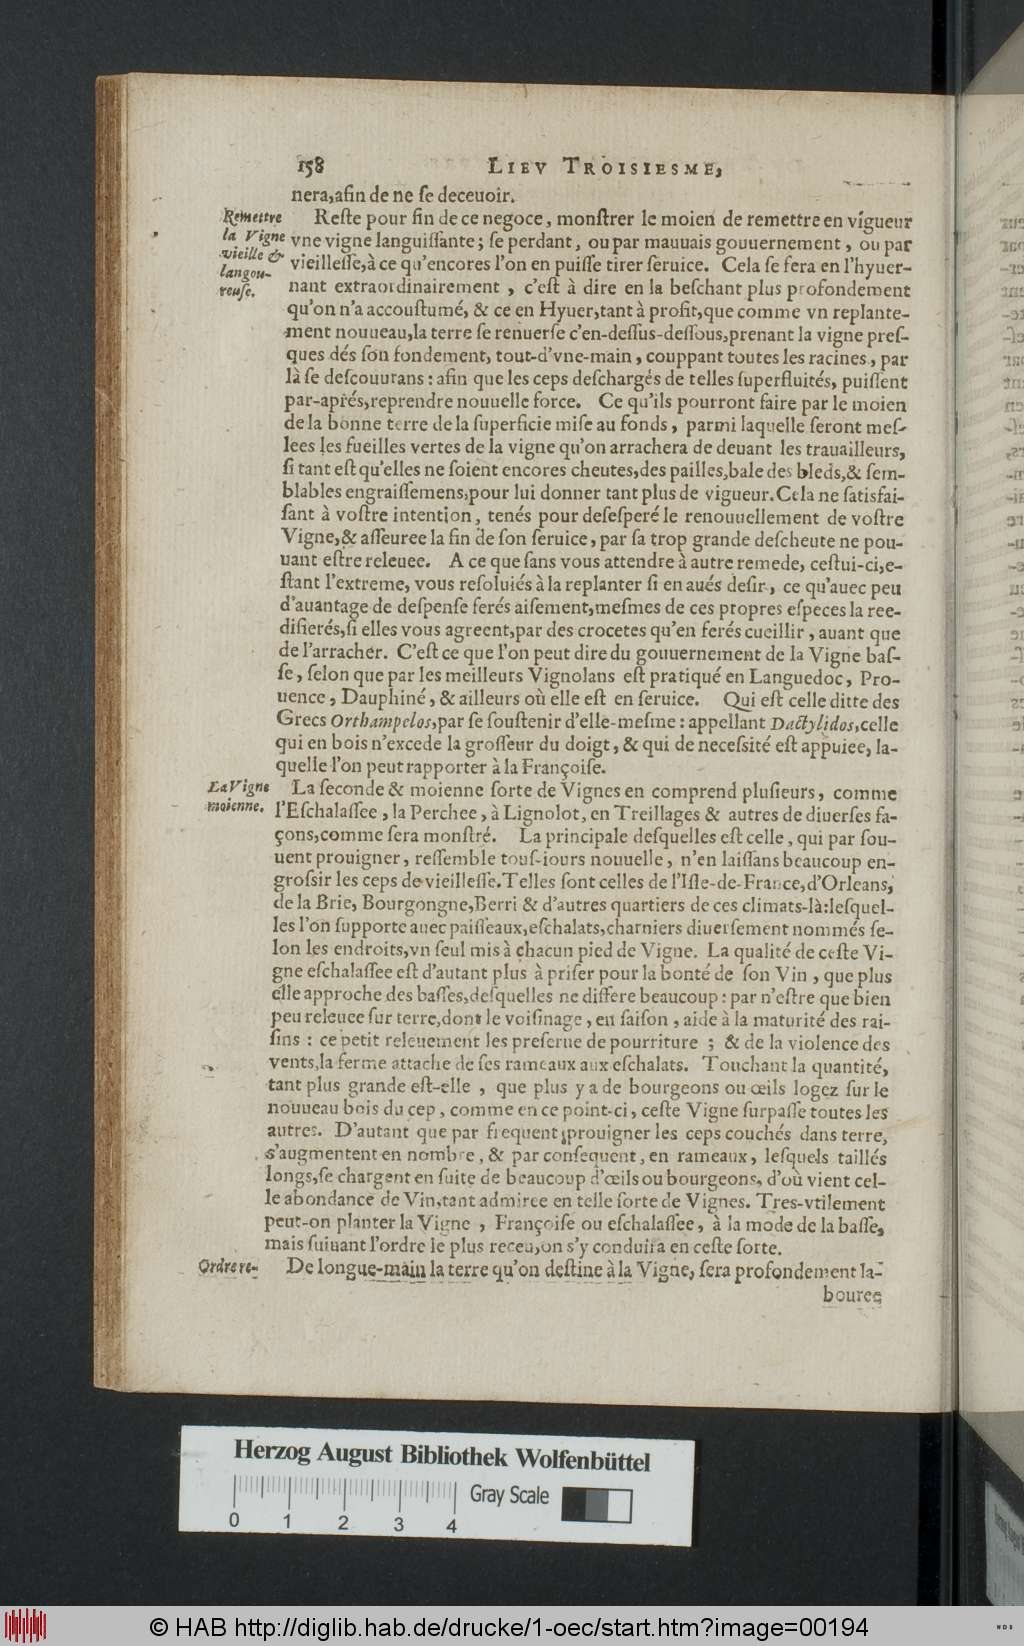 158 LIEV TROISIESME,
nera, afin de ne ſe deceuoir.
Remettre
la Vigne
vieille &
langou-
reuſe.
Reſte pour fin de ce negoce, monſtrer le moien de remettre en vigueur
vne vigne languiſſante; ſe perdant, ou par mauuais gouuernement, ou par
vieilleſſe, à ce qu'encores l'on en puiſſe tirer ſeruice. Cela ſe fera en l'hyuer-
nant extraordinairement, c'eſt à dire en la beſchant plus profondement
qu'on n'a accouſtumé, & ce en Hyuer, tant à profit, que comme vn replante-
ment nouueau, la terre ſe renuerſe c'en-deſſus-deſſous, prenant la vigne preſ-
ques dés ſon fondement, tout-d'vne-main, couppant toutes les racines, par
là ſe deſcouurans: afin que les ceps deſchargés de telles ſuperfluités, puiſſent
par-aprés, reprendre nouuelle force. Ce qu'ils pourront faire par le moien
de la bonne terre de la ſuperficie miſe au fonds, parmi laquelle ſeront meſ-
lees les fueilles vertes de la vigne qu'on arrachera de deuant les trauailleurs,
ſi tant eſt qu'elles ne ſoient encores cheutes, des pailles, bale des bleds, & ſem-
blables engraiſſemens, pour lui donner tant plus de vigueur. Cela ne ſatisfai-
ſant à voſtre intention, tenés pour deſeſperé le renouuellement de voſtre
Vigne, & aſſeuree la fin de ſon ſeruice, par ſa trop grande deſcheute ne pou-
uant eſtre releuee. A ce que ſans vous attendre à autre remede, ceſtui-ci, e-
ſtant l'extreme, vous reſoluiés à la replanter ſi en aués deſir, ce qu'auec peu
d'auantage de deſpenſe ferés aiſement, meſmes de ces propres eſpeces la ree-
difierés, ſi elles vous agreent, par des crocetes qu'en ferés cueillir, auant que
de l'arracher. C'eſt ce que l'on peut dire du gouuernement de la Vigne baſ-
ſe, ſelon que par les meilleurs Vignolans eſt pratiqué en Languedoc, Pro-
uence, Dauphiné, & ailleurs où elle eſt en ſeruice. Qui eſt celle ditte des
Grecs Orthampelos, par ſe ſouſtenir d'elle-meſme: appellant Dactylidos, celle
qui en bois n'excede la groſſeur du doigt, & qui de neceſsité eſt appuiee, la-
quelle l'on peut rapporter à la Françoiſe.
La Vigne
moienne.
La ſeconde & moienne ſorte de Vignes en comprend pluſieurs, comme
l'Eſchalaſſee, la Perchee, à Lignolot, en Treillages & autres de diuerſes fa-
çons, comme ſera monſtré. La principale deſquelles eſt celle, qui par ſou-
uent prouigner, reſſemble touſ-iours nouuelle, n'en laiſſans beaucoup en-
groſsir les ceps de vieilleſſe. Telles ſont celles de l'Iſle-de-France, d'Orleans,
de la Brie, Bourgongne, Berri & d'autres quartiers de ces climats-là: leſquel-
les l'on ſupporte auec paiſſeaux, eſchalats, charniers diuerſement nommés ſe-
lon les endroits, vn ſeul mis à chacun pied de Vigne. La qualité de ceſte Vi-
gne eſchalaſſee eſt d'autant plus à priſer pour la bonté de ſon Vin, que plus
elle approche des baſſes, deſquelles ne differe beaucoup: par n'eſtre que bien
peu releuee ſur terre, dont le voiſinage, en ſaiſon, aide à la maturité des rai-
ſins: ce petit releuement les preſerue de pourriture; & de la violence des
vents, la ferme attache de ſes rameaux aux eſchalats. Touchant la quantité,
tant plus grande eſt-elle, que plus y a de bourgeons ou œils logez ſur le
nouueau bois du cep, comme en ce point-ci, ceſte Vigne ſurpaſſe toutes les
autres. D'autant que par frequent prouigner les ceps couchés dans terre,
s'augmentent en nombre, & par conſequent, en rameaux, leſquels taillés
longs, ſe chargent en ſuite de beaucoup d'œils ou bourgeons, d'où vient cel-
le abondance de Vin, tant admiree en telle ſorte de Vignes. Tres-vtilement
peut-on planter la Vigne, Françoiſe ou eſchalaſſee, à la mode de la baſſe,
mais ſuiuant l'ordre le plus receu, on s'y conduira en ceſte ſorte.
Ordre re-
De longue-main la terre qu'on deſtine à la Vigne, ſera profondement la-
bouree
Herzog August Bibliothek Wolfenbüttel
Gray Scale
0 1 2 3 4
© HAB http://diglib.hab.de/drucke/1-oec/start.htm?image=00194